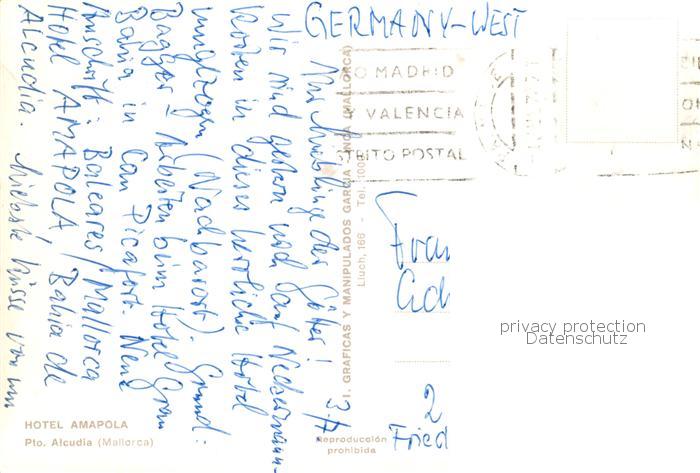 GERMANY-WEST
O MADRID
Y VALENCIA
STRITO POSTAL
Ihr Lieblinge der Götter! 3.7
Wir sind gestern noch auf Neckermann-
kosten in dieses herrliche Hotel
umgezogen (Nachbarort). Grund:
Bagger Arbeiten beim Hotel Gran
Bahia in Can Picafort. Neue
Anschrift: Baleares/Mallorca
Hotel AMAPOLA/Bahia de
Alcudia. Liebste Küsse von
I. GRAFICAS Y MANIPULADOS GARCIA INCA (MALLORCA)
Lluch, 166 - Tel. 100
Frau
2
Fried
privacy protection
Datenschutz
HOTEL AMAPOLA
Pto. Alcudia (Mallorca)
Reproducción
prohibida